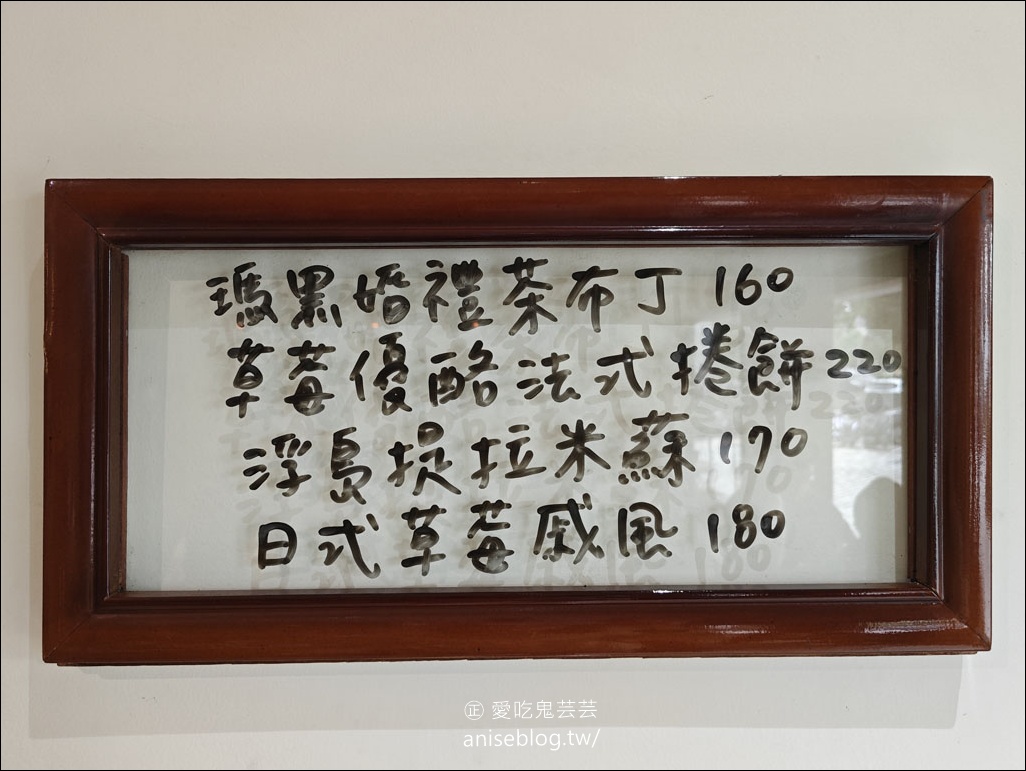 瑪黑婚禮茶布丁 160
草莓優酪法式捲餅 220
浮島提拉米蘇 170
日式草莓戚風 180
㊣ 愛吃鬼芸芸
aniseblog.tw/